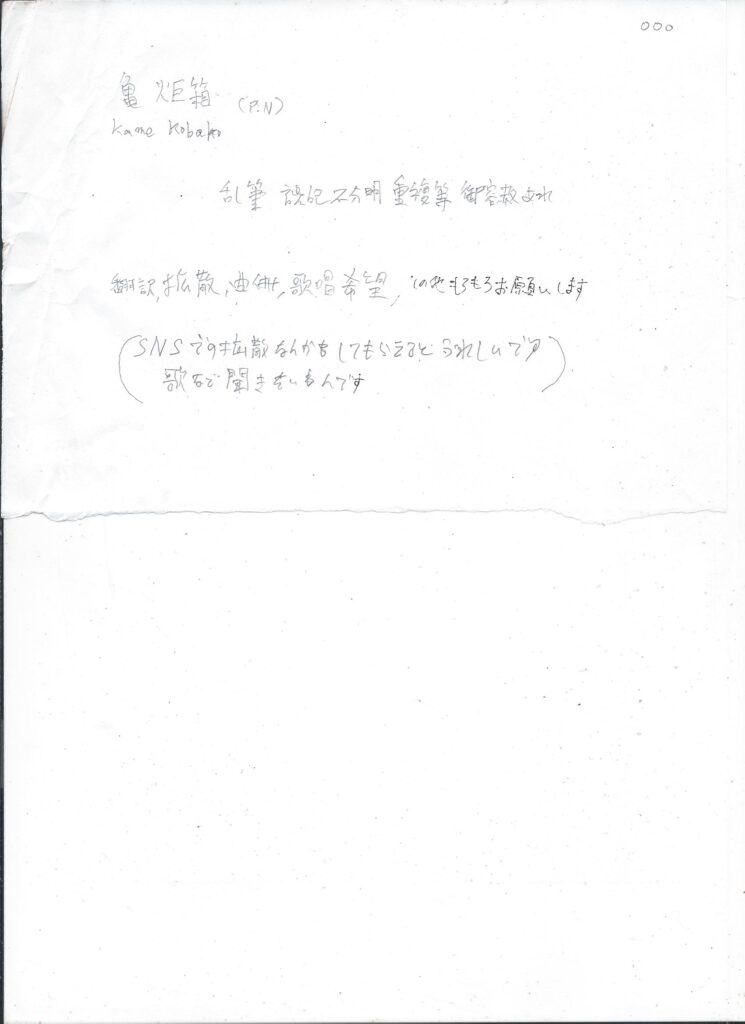 000
亀 炬箱 (P.N)
Kame Kobako
乱筆 誤記 不分明 重複等 御容赦あれ
翻訳,拡散,曲付,歌唱希望, その他もろもろお願いします
(SNSでの拡散なんかもしてもらえるとうれしいです
歌声で聞きたいもんです)